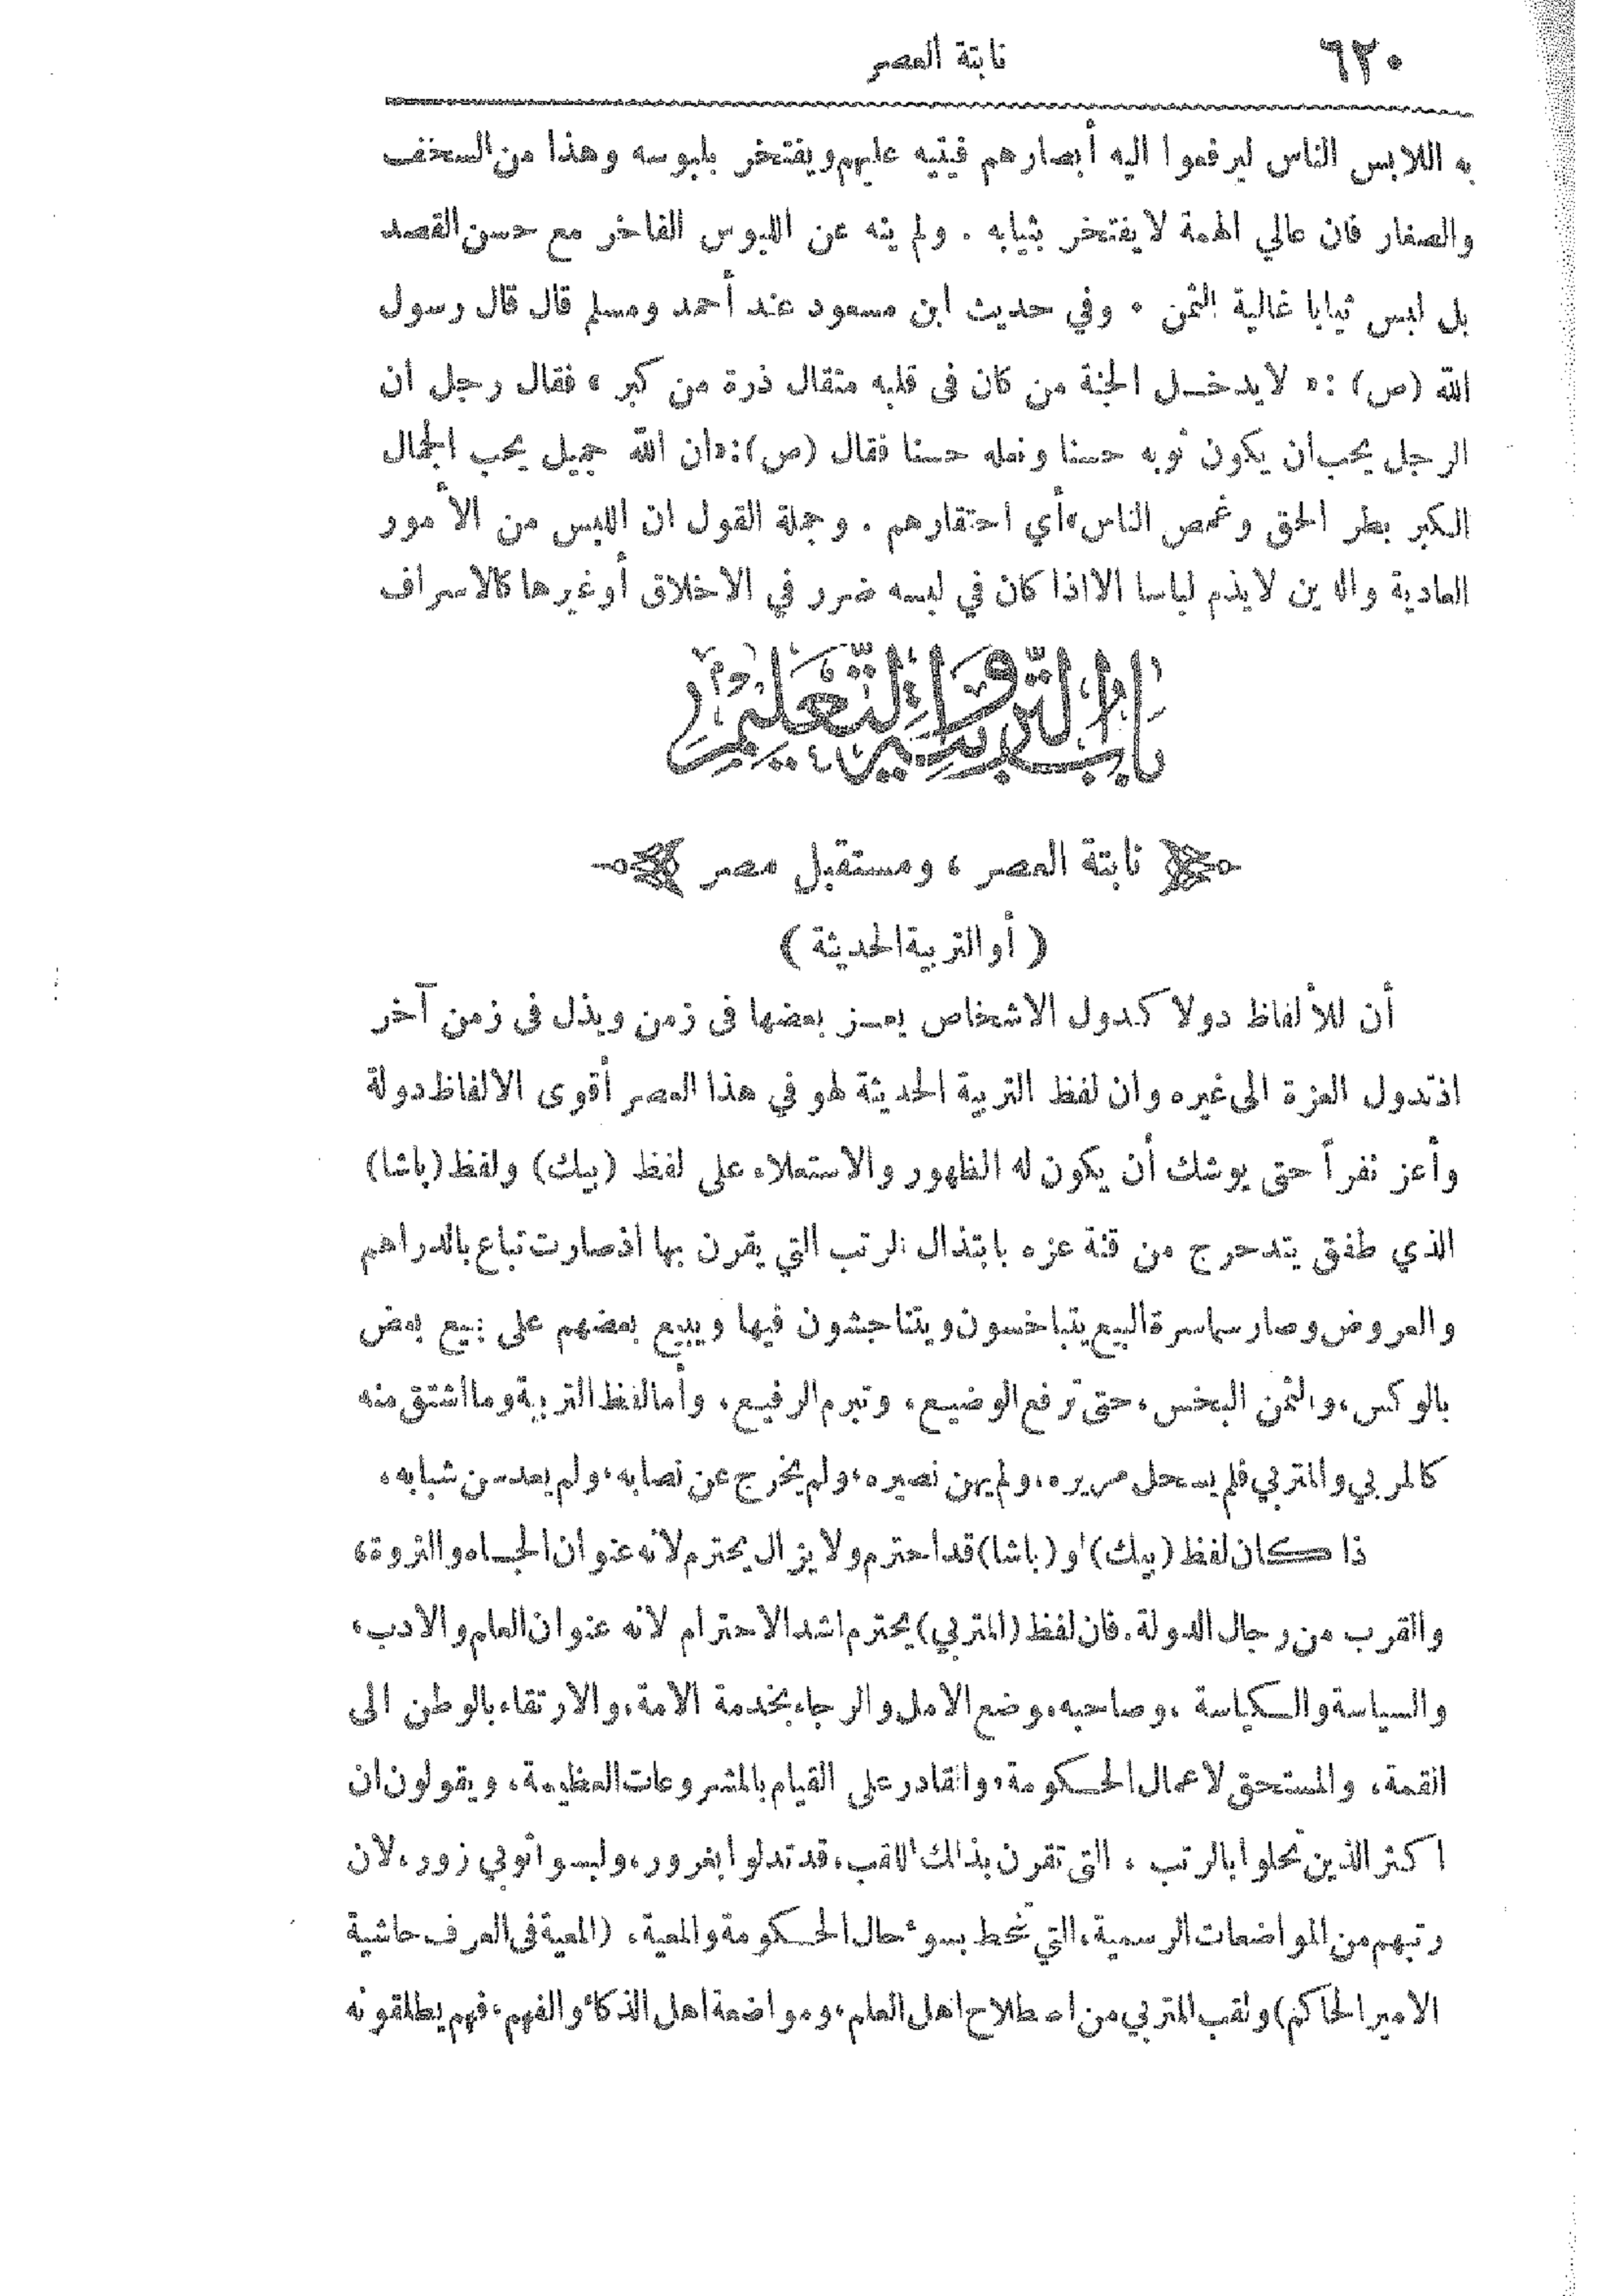 ٦٢٠
نابتة العصر
به اللابس الناس ليرفعوا اليه أبصارهم فيتيه عليهم ويفتخر بلبوسه وهذا من السخف
والصغار فان عالي الهمة لا يفتخر بثيابه . ولم ينه عن اللبوس الفاخر مع حسن القصد
بل لبس ثيابا غالية الثمن . وفي حديث ابن مسعود عند أحمد ومسلم قال قال رسول
الله (ص) :« لا يدخل الجنة من كان فى قلبه مثقال ذرة من كبر » فقال رجل ان
الرجل يحب ان يكون ثوبه حسنا ونعله حسنا فقال (ص):«ان الله جميل يحب الجمال
الكبر بطر الحق وغمص الناس» أي احتقارهم . وجملة القول ان اللبس من الأمور
العادية والدين لا يذم لباسا الا اذا كان في لبسه ضرر في الاخلاق أو غيرها كالاسراف
باب التربية والتعليم
نابتة العصر ، ومستقبل مصر
( أو التربية الحديثة )
أن للألفاظ دولا كدول الاشخاص يعز بعضها فى زمن ويذل فى زمن آخر
اذ تدول العزة الى غيره وان لفظ التربية الحديثة لهو في هذا العصر أقوى الالفاظ دولة
وأعز نفراً حتى يوشك أن يكون له الظهور والاستعلاء على لفظ (بيك) ولفظ (باشا)
الذي طفق يتدحرج من قنة عزه بابتذال الرتب التي يقرن بها اذ صارت تباع بالدراهم
والعروض وصار سماسرة البيع يتباخسون ويتناجشون فيها ويبيع بعضهم على بيع بعض
بالوكس، والثمن البخس، حتى ترفع الوضيع، وتبرم الرفيع، وأما لفظ التربية وما اشتق منه
كالمربي والمتربي فلم يسحل مريره، ولم يهن نصيره، ولم يخرج عن نصابه، ولم يعد سن شبابه،
ذا كان لفظ (بيك) او (باشا) قد احترم ولا يزال يحترم لانه عنوان الجاه والثروة،
والقرب من رجال الدولة. فان لفظ (المتربي) يحترم اشد الاحترام لانه عنوان العلم والادب،
والسياسة والكياسة ، وصاحبه موضع الامل والرجاء بخدمة الامة، والارتقاء بالوطن الى
القمة، والمستحق لاعمال الحكومة، والقادر على القيام بالمشروعات العظيمة، ويقولون ان
اكثر الذين تحلوا بالرتب ، التى تقرن بذلك اللقب، قد تدلوا بغرور، ولبسوا ثوبي زور، لان
رتبهم من المواضعات الرسمية، التي تحط بسوء حال الحكومة والمعية، (المعية فى العرف حاشية
الامير الحاكم) ولقب المتربي من اصطلاح اهل العلم، ومواضعة اهل الذكاء والفهم، فهم يطلقونه